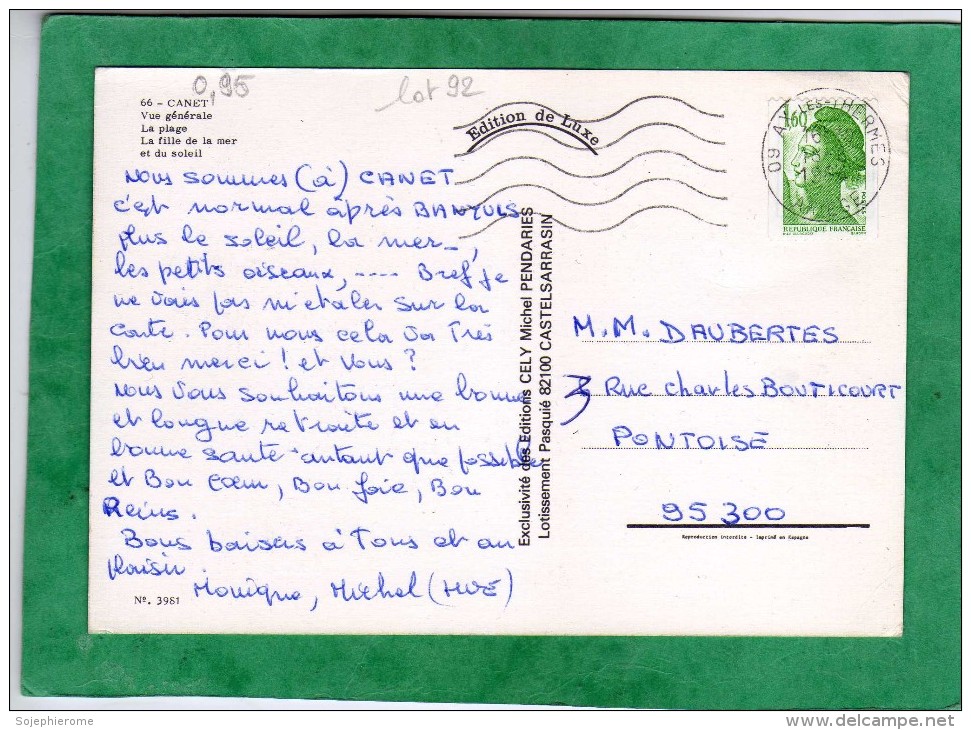 0,95
lot 92
66 - CANET
Vue générale
La plage
La fille de la mer
et du soleil
Edition de Luxe
09 AX-LES-THERMES
1,60
REPUBLIQUE FRANÇAISE
Nous sommes (à) CANET
c'est normal après BANYULS
plus le soleil, la mer,
les petits oiseaux, ---- Bref je
ne vais pas m'étaler sur la
carte. Pour nous cela va Très
bien merci ! et vous ?
Nous vous souhaitons une bonne
et longue retraite et en
bonne santé autant que possible
et Bon Cœur, Bon foie, Bon
Reins.
Bons baisers à Tous et au
plaisir.
Monique, Michel
Nº. 3981
Exclusivité des Editions CELY Michel PENDARIES
Lotissement Pasquié 82100 CASTELSARRASIN
M. M. DAUBERTES
3 Rue Charles BOUTICOURT
PONTOISE
95300
Reproduction interdite - Imprimé en Espagne
Sojephierome
delcampe.net